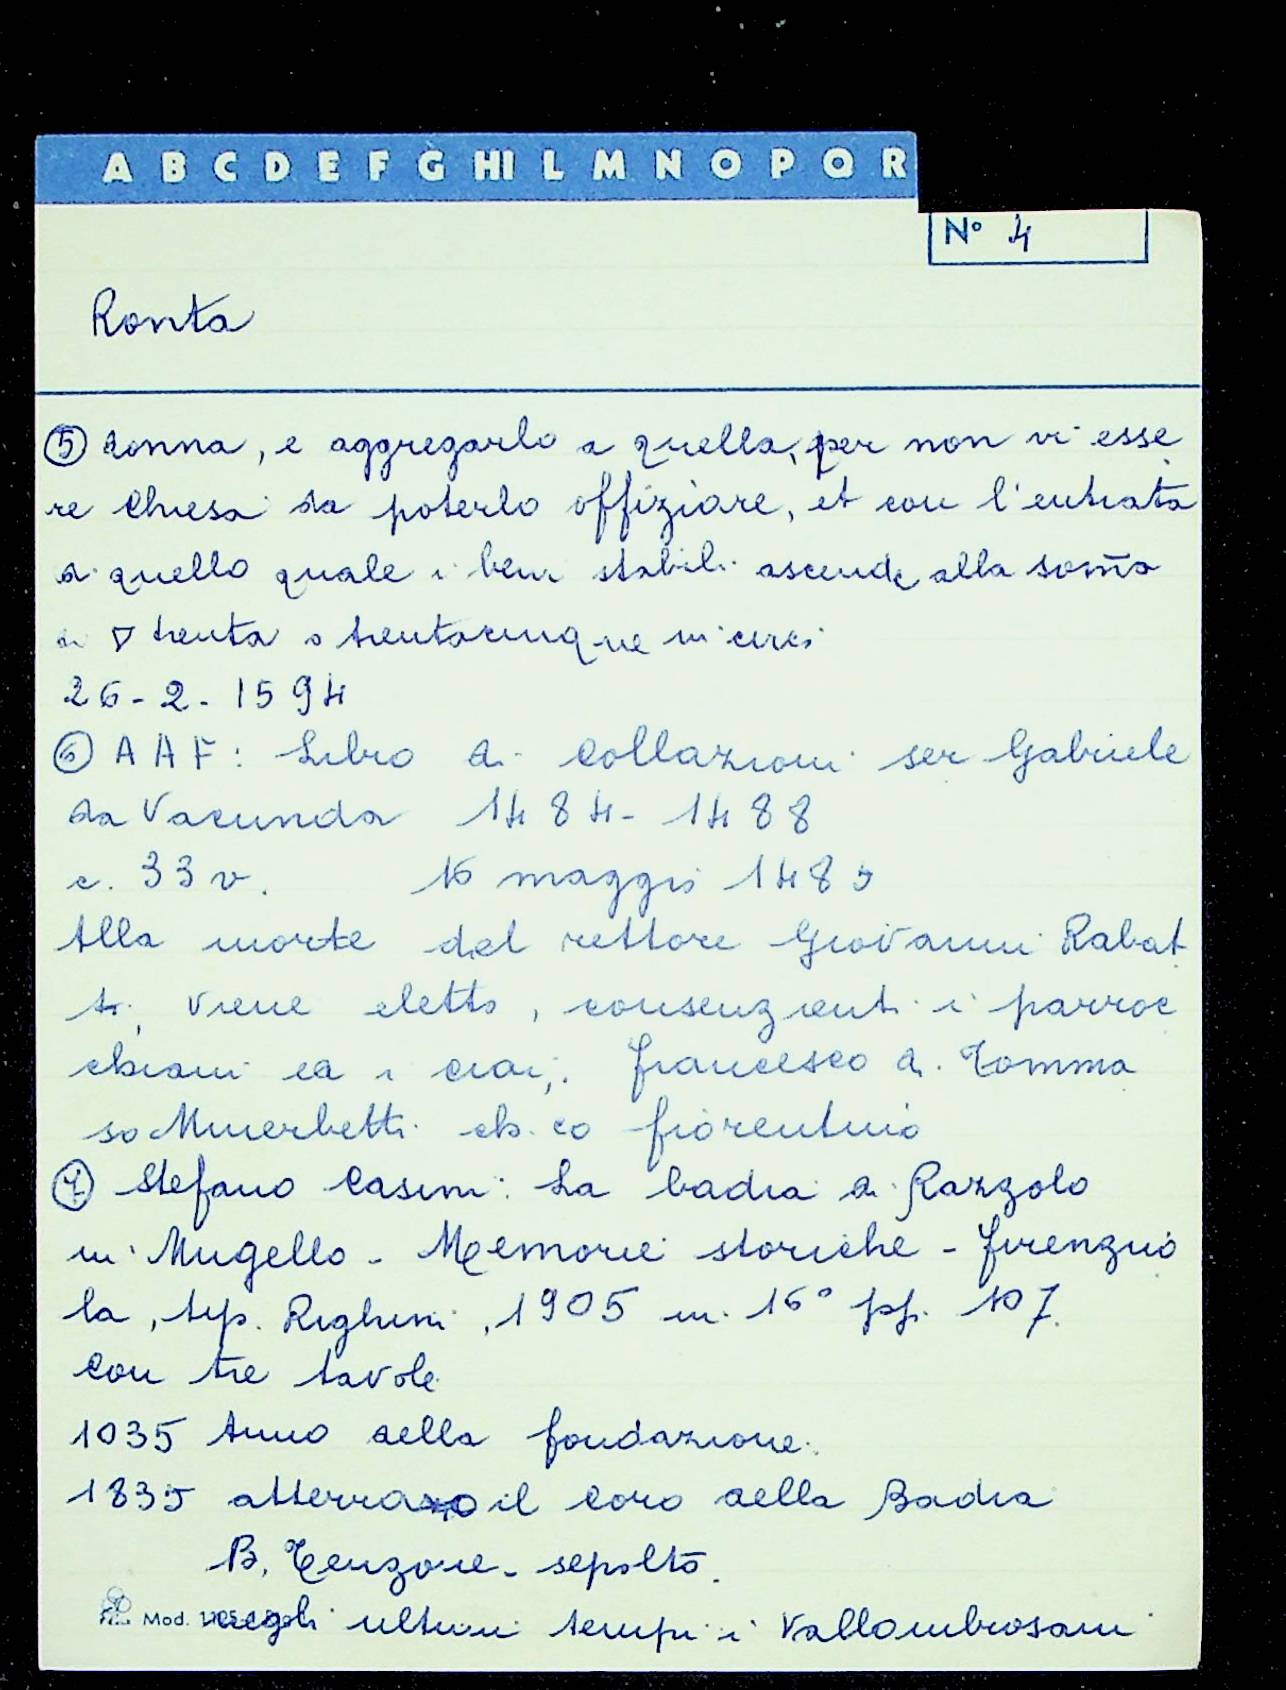 A B C D E F G HI L M N O P Q R
N° 4
Ronta
⑤ donna, e aggregarlo a quella, per non vi esse
re Chiesa da poterlo offiziare, et con l'entrata
di quello quale i beni stabili ascende alla som̄a
di ∇ trenta o trentacinque in circa
26-2-1594
⑥ AAF: Libro di Collazioni ser Gabriele
da Vacunda 1484-1488
c. 33 v. 16 maggio 1485
Alla morte del rettore Giovanni Rabat
ti, viene eletto, consenzienti i parroc
chiani ed i Francesco di Tomma
so Minerbetti ch.co fiorentino
⑦ Stefano Casini: La badia di Razzolo
in Mugello - Memorie storiche - Firenzuo
la, tip. Righini, 1905 in 16° pp. 107.
con tre tavole
1035 Anno della fondazione.
1835 atterrato il coro della Badia
B. Tenzone - sepolto.
Mod. negli ultimi tempi i Vallombrosani